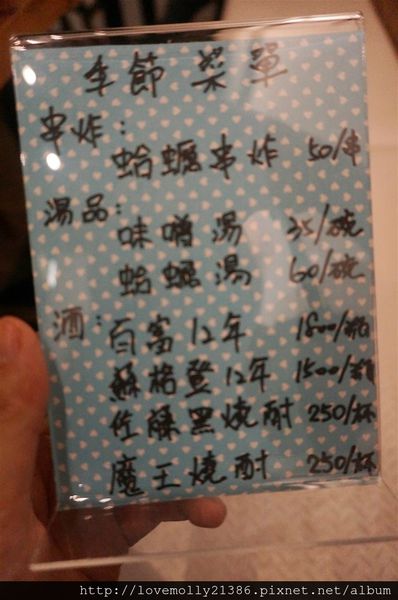 季節菜單
串炸：
蛤蠣串炸 50/串
湯品：
味噌湯 35/碗
蛤蠣湯 60/碗
酒：百富12年 1800/瓶
蘇格登12年 1500/瓶
佐藤黑燒酎 250/杯
魔王燒酎 250/杯
http://lovemolly21386.pixnet.net/album